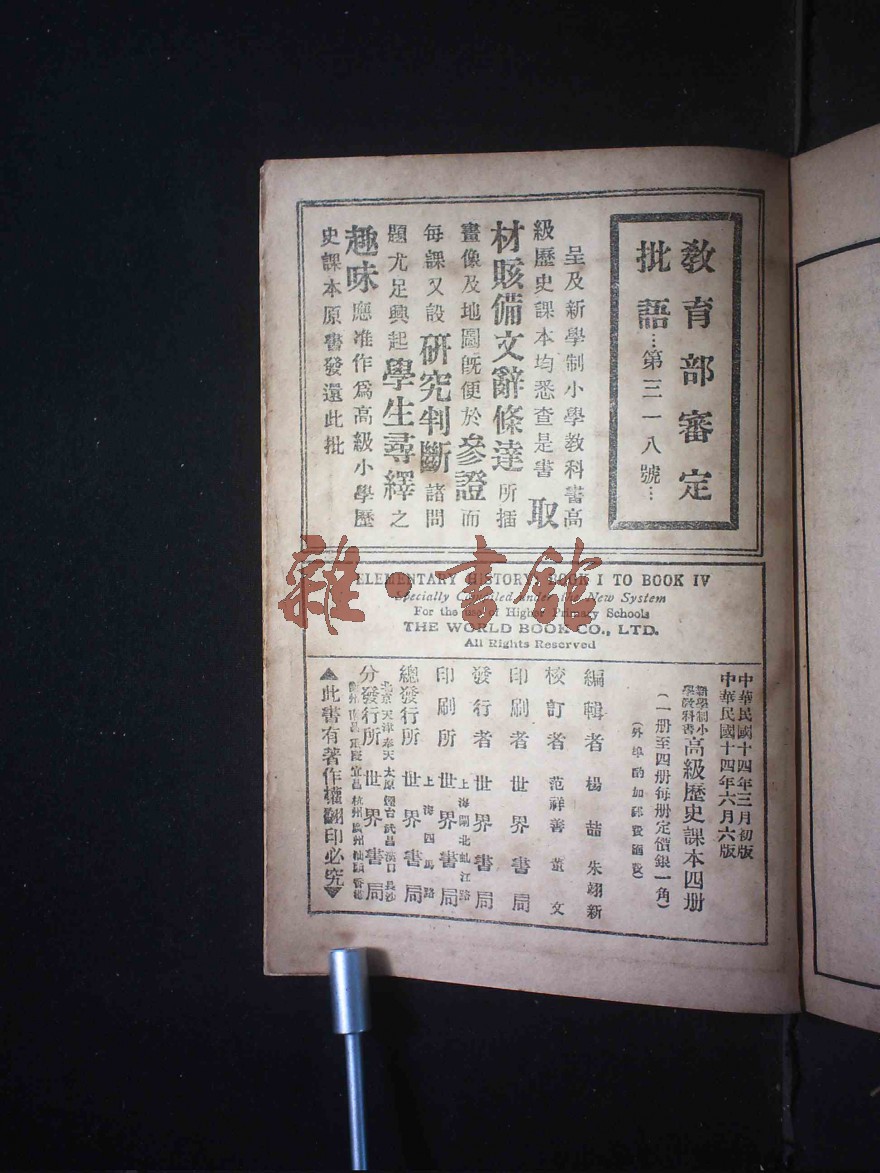 教育部審定
批語…第三一八號…
呈及新學制小學教科書高
級歷史課本均悉查是書取
材賅備文辭條達所插
畫像及地圖旣便於參證而
每課又設研究判斷諸問
題尤足興起學生尋繹之
趣味應准作爲高級小學歷
史課本原書發還此批
ELEMENTARY HISTORY, BOOK I TO BOOK IV
Specially Compiled under the New System
For the use of Higher Primary Schools
THE WORLD BOOK CO., LTD.
All Rights Reserved
中華民國十四年三月初版
中華民國十四年六月六版
新學制小學教科書高級歷史課本四册
(一册至四册每册定價銀一角)
(外埠酌加郵費匯費)
編輯者 楊喆 朱翊新
校訂者 范祥善 董文
印刷者 世界書局
發行者 世界書局
印刷所 上海閘北虬江路 世界書局
總發行所 上海四馬路 世界書局
分發行所 北京 天津 奉天 太原 烟台 武昌 漢口 長沙 南昌 宜昌 杭州 世界書局
▲此書有著作權翻印必究▼
雜·書館